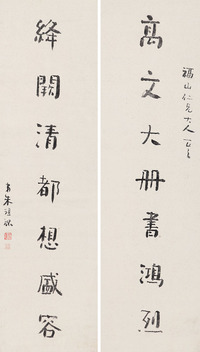 福山仁兄大人
高文大册書鴻烈
絳闕清都想盛容
朱祖謀